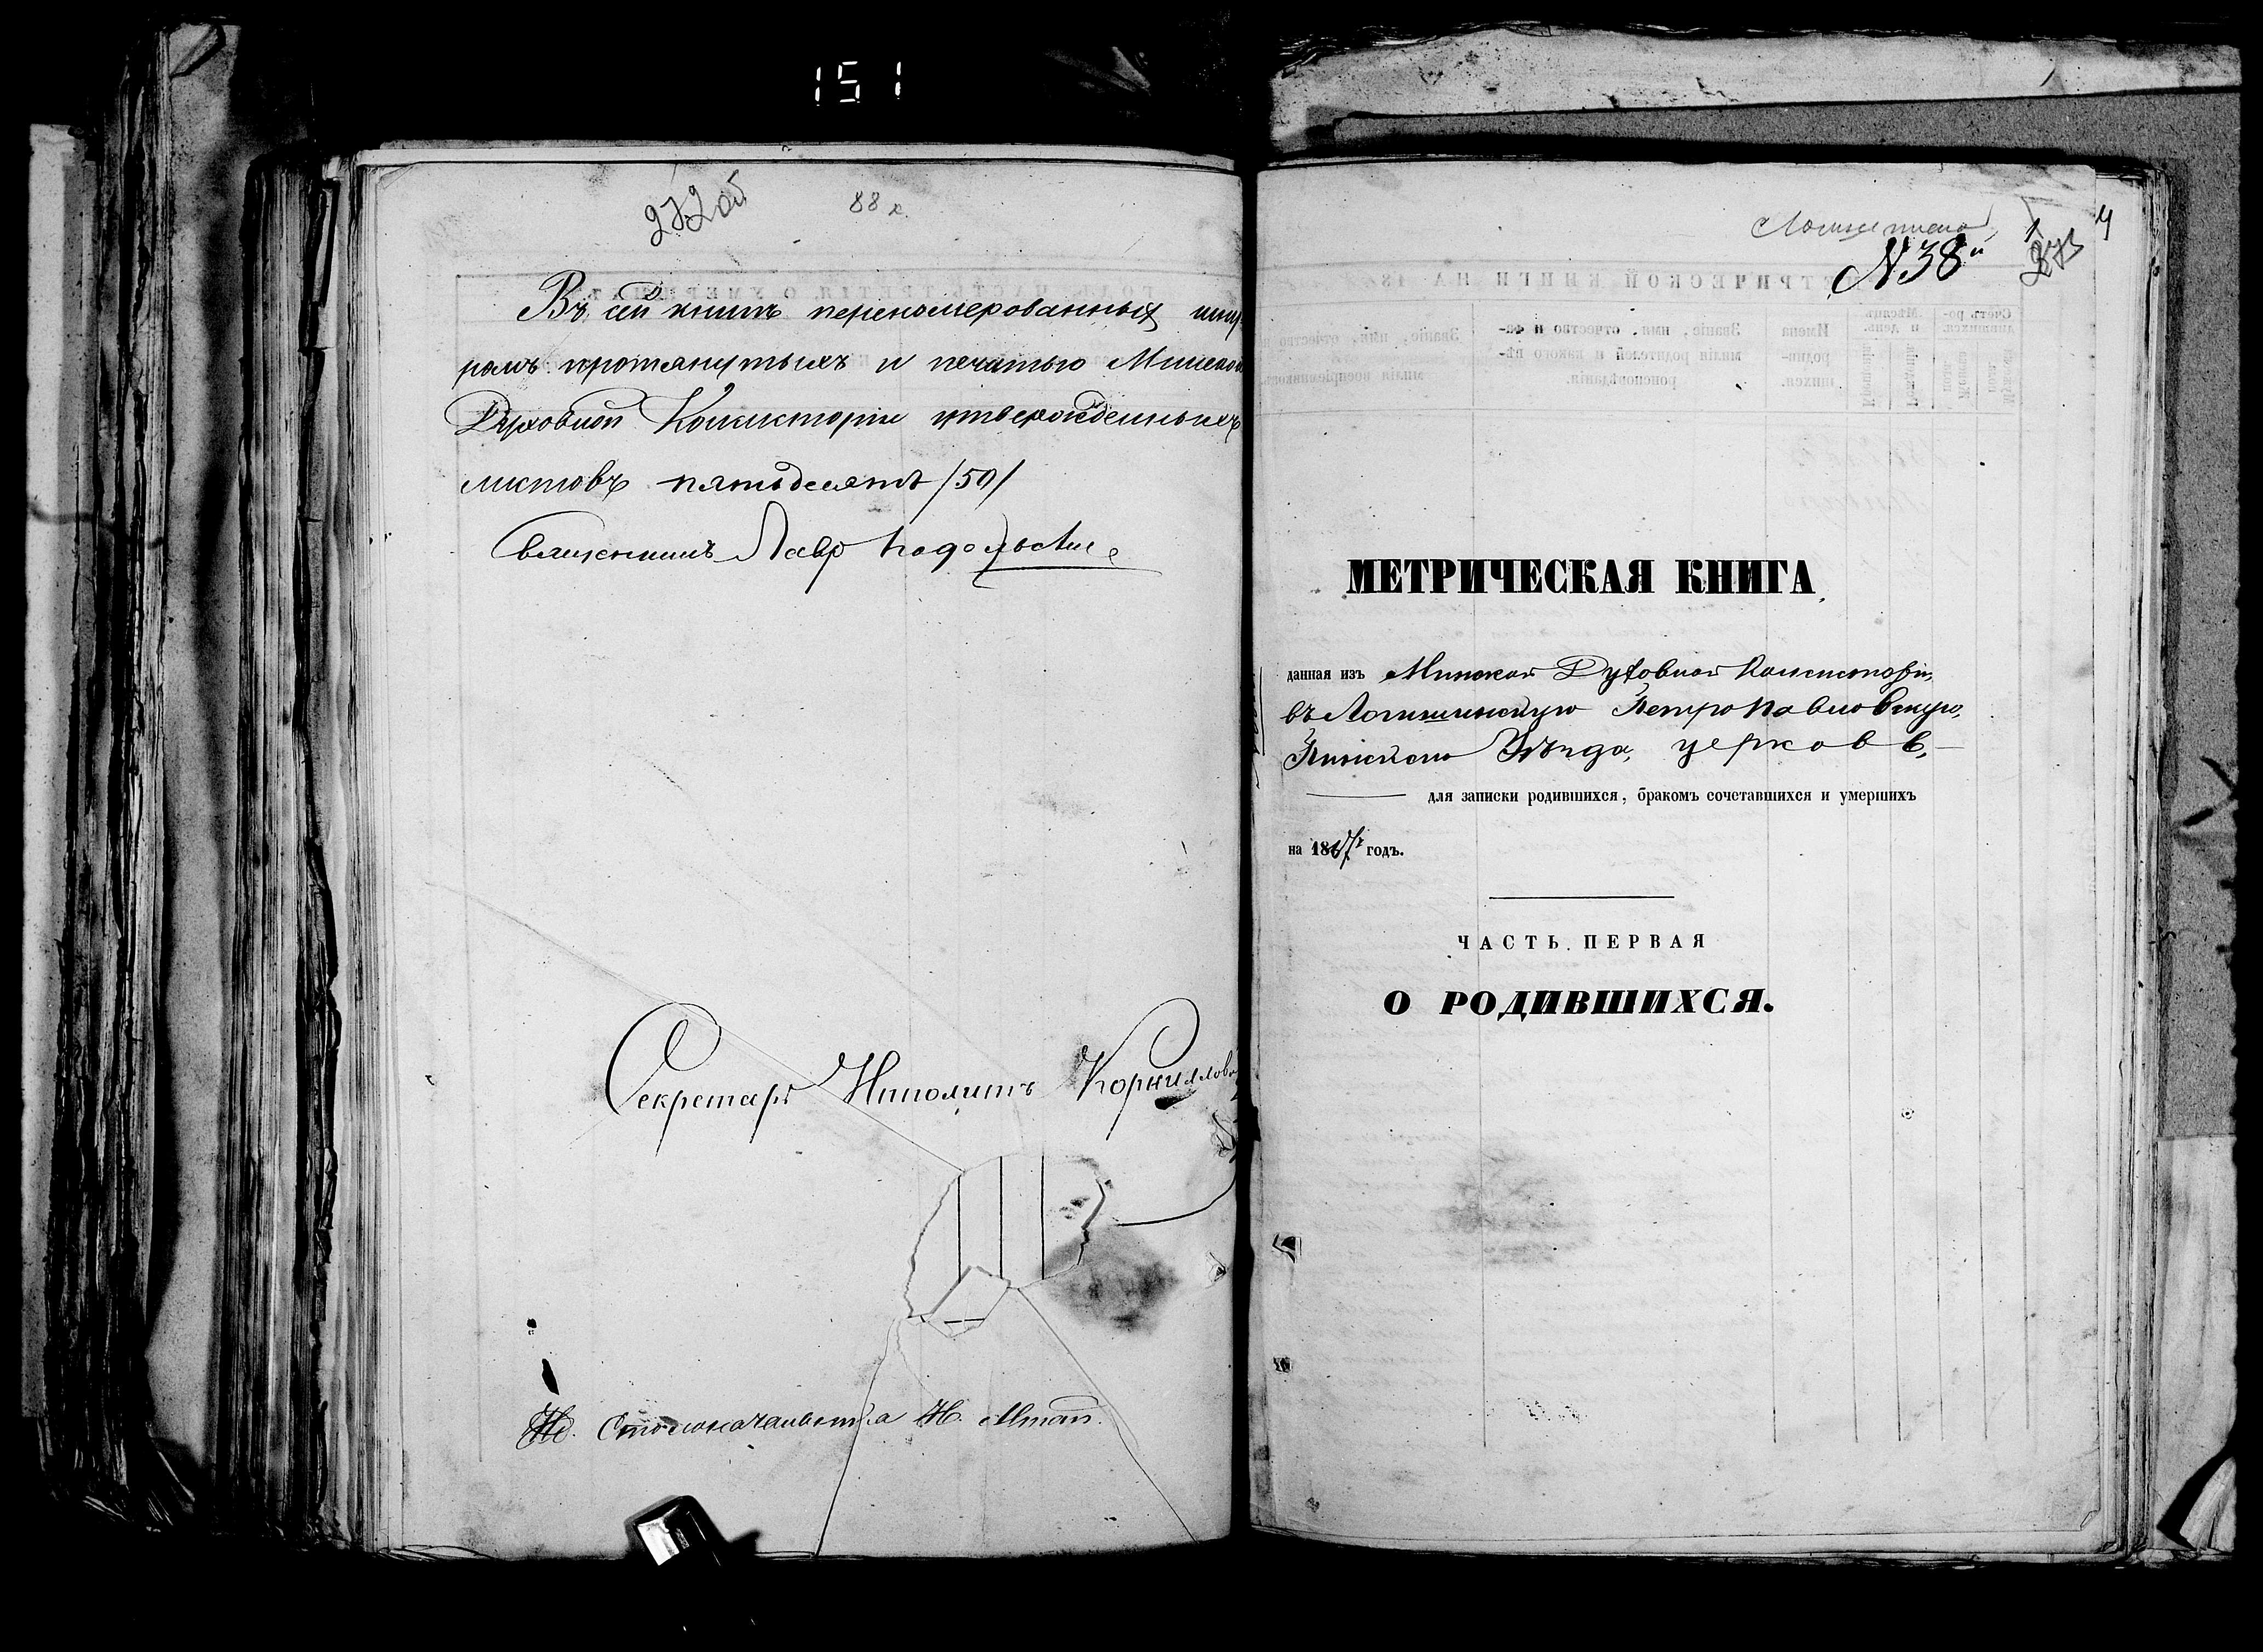 151
272 об
88 л.
Въ сей книгѣ перенумерованныхъ шну
ромъ протянутыхъ и печатью Минской
Духовной Консисторіи утвержденныхъ
листовъ пятьдесятъ /50/
Священникъ Лавръ Подольскій
Секретарь Ипполитъ Корниллов
Столоначальника Н.
№ 38й
273
МЕТРИЧЕСКАЯ КНИГА
данная изъ Минской Духовной Консисторіи
въ Логишинскую Петропавловскую,
Пинскаго Уѣзда, церковь,
для записки родившихся, бракомъ сочетавшихся и умершихъ
на 1867й годъ.
ЧАСТЬ ПЕРВАЯ
О РОДИВШИХСЯ.